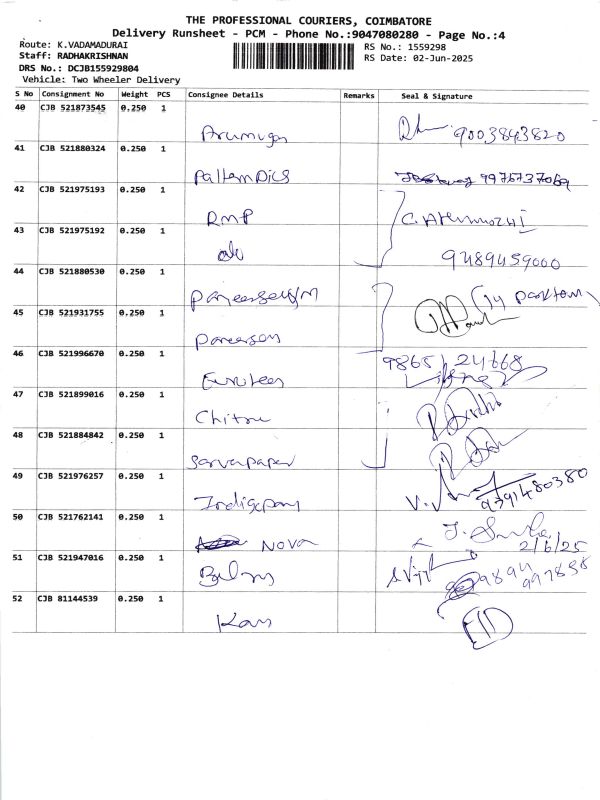 THE PROFESSIONAL COURIERS, COIMBATORE
Delivery Runsheet - PCM - Phone No.:9047080280 - Page No.:4
Route: K.VADAMADURAI
RS No.: 1559298
Staff: RADHAKRISHNAN
RS Date: 02-Jun-2025
DRS No.: DCJB155929804
Vehicle: Two Wheeler Delivery
S No Consignment No Weight PCS Consignee Details Remarks Seal & Signature
40 CJB 521873545 0.250 1 Arumugam 9003843820
41 CJB 521880324 0.250 1
42 CJB 521975193 0.250 1 RMP
43 CJB 521975192 0.250 1 do 9489459000
44 CJB 521880530 0.250 1
45 CJB 521931755 0.250 1
46 CJB 521996670 0.250 1 9865124668
47 CJB 521899016 0.250 1 Chitra
48 CJB 521884842 0.250 1
49 CJB 521976257 0.250 1 9791480380
50 CJB 521762141 0.250 1 NOVA 2/6/25
51 CJB 521947016 0.250 1
52 CJB 81144539 0.250 1